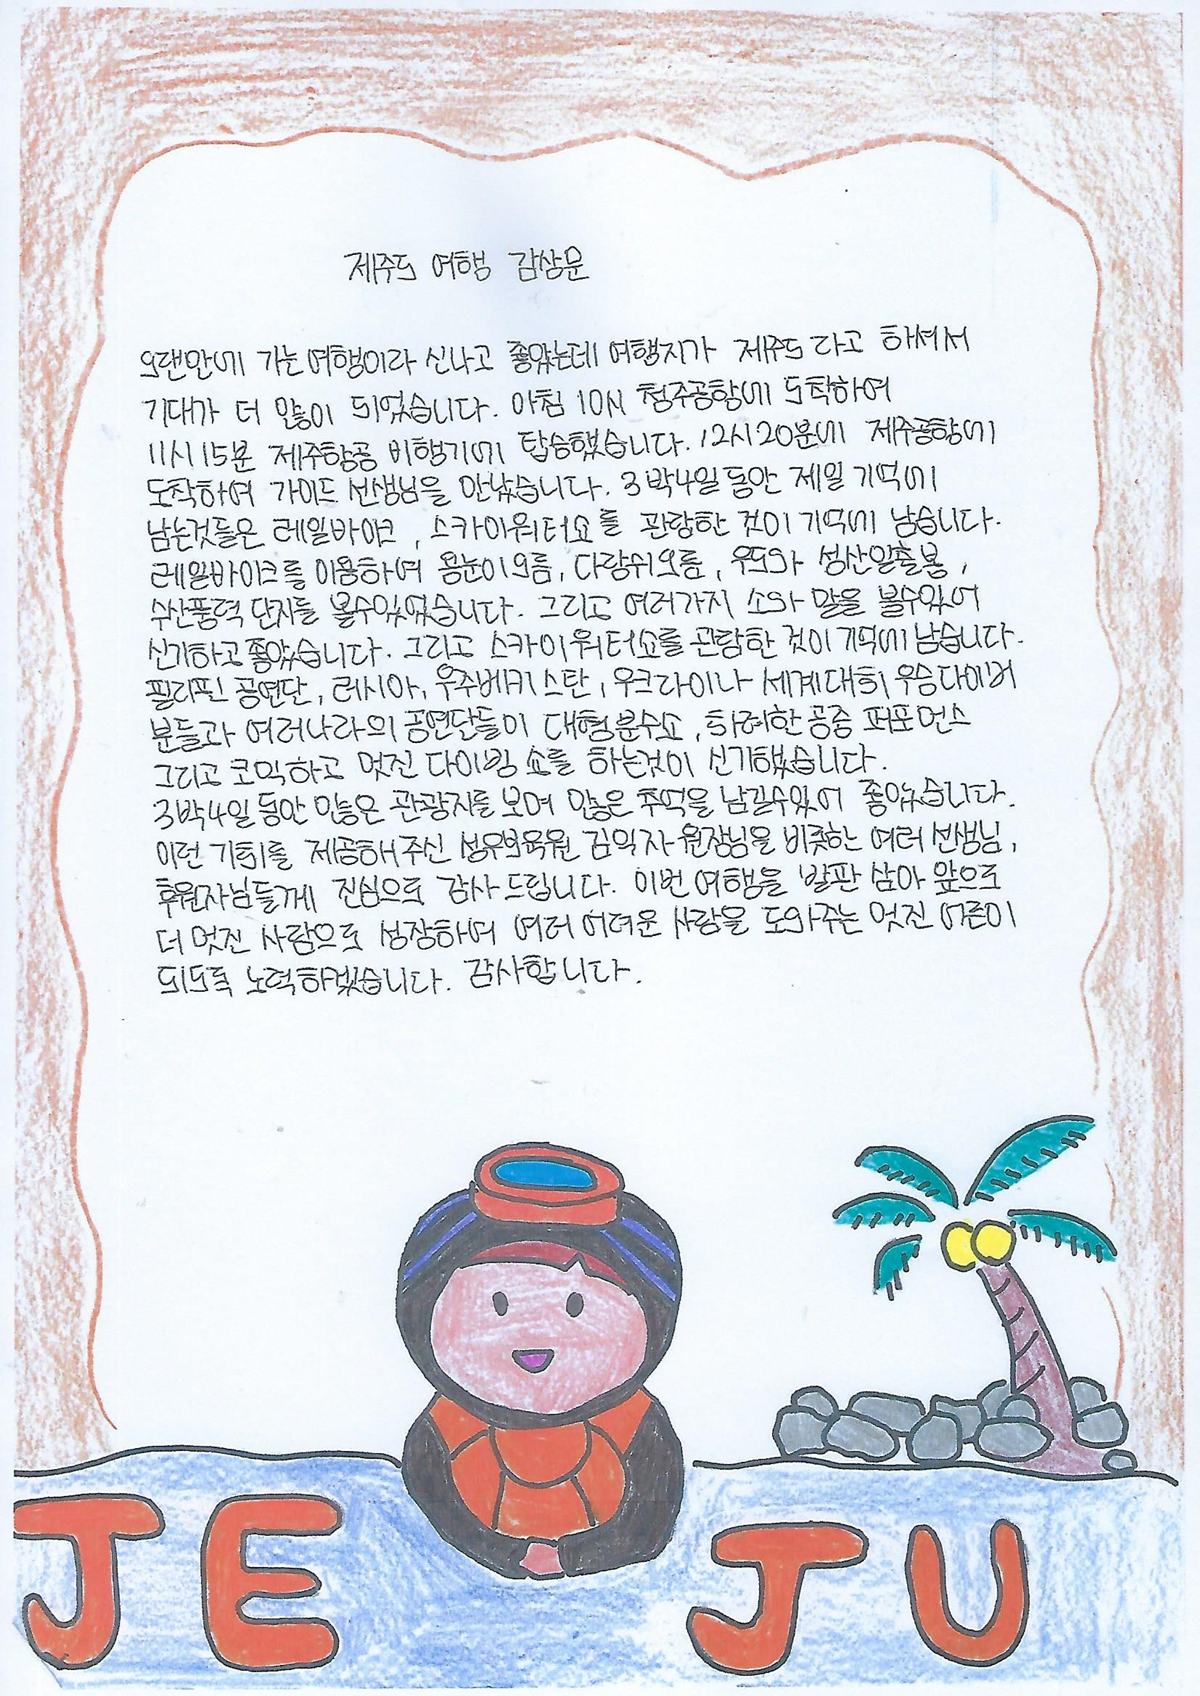 제주도 여행 감상문
오랜만에 가는 여행이라 신나고 좋았는데 여행지가 제주도 라고 하셔서
기대가 더 많이 되었습니다. 아침 10시 청주공항에 도착하여
11시 15분 제주항공 비행기에 탑승했습니다. 12시 20분에 제주공항에
도착하여 가이드 선생님을 만났습니다. 3박4일 동안 제일 기억에
남는것들은 레일바이크, 스카이워터쇼를 관람한 것이 기억에 남습니다.
레일바이크를 이용하여 용눈이오름, 다랑쉬오름, 우도와 성산일출봉,
수산풍력 단지들 볼수있었습니다. 그리고 여러가지 소와 말을 볼수있어
신기하고 좋았습니다. 그리고 스카이워터쇼를 관람한 것이 기억에 남습니다.
필리핀 공연단, 러시아, 우주베키스탄, 우크라이나 세계대회 우승다이버
분들과 여러나라의 공연단들이 대형분수쇼, 화려한 공중 퍼포먼스
그리고 코믹하고 멋진 다이빙 쇼를 하는것이 신기했습니다.
3박4일 동안 많은 관광지를 보며 많은 추억을 남길수있어 좋았습니다.
이런 기회를 제공해 주신 성유보육원 김익자 원장님을 비롯한 여러 선생님,
후원자님들께 진심으로 감사 드립니다. 이번 여행을 발판 삼아 앞으로
더 멋진 사람으로 성장하여 여러 어려운 사람을 도와주는 멋진 어른이
되도록 노력하겠습니다. 감사합니다.
JE JU